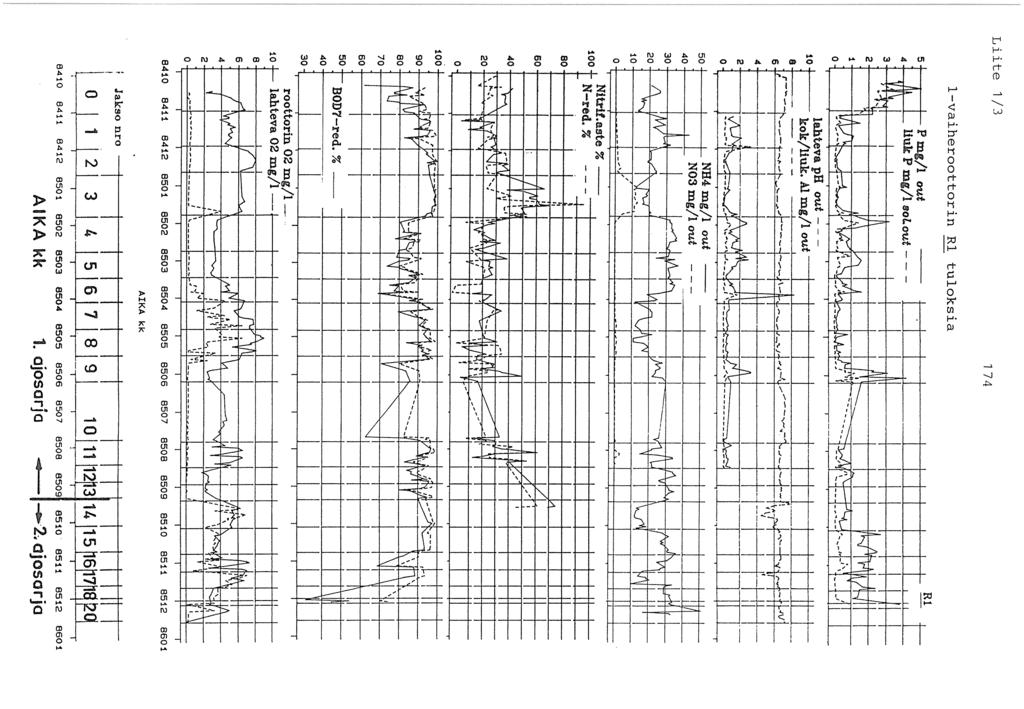 Liite 1/3
174
1-vaiheroottorin R1 tuloksia
R1
P mg/l out
liuk P mg/l sol.out - - -
5
4
3
2
1
0
lahteva pH out - - -
kok/liuk. Al mg/l out
10
8
6
4
2
0
NH4 mg/l out
NO3 mg/l out - - -
50
40
30
20
10
0
Nitrif.aste %
N-red.% - - -
100
80
60
40
20
0
BOD7-red. %
100
90
80
70
60
50
40
30
roottorin O2 mg/l
lahteva O2 mg/l
10
8
6
4
2
0
8410 8411 8412 8501 8502 8503 8504 8505 8506 8507 8508 8509 8510 8511 8512 8601
AIKA kk
Jakso nro
0 1 2 3 4 5 6 7 8 9 10 11 12 13 14 15 16 17 18 20
8410 8411 8412 8501 8502 8503 8504 8505 8506 8507 8508 8509 8510 8511 8512 8601
AIKA kk 1. ajosarja 2. ajosarja